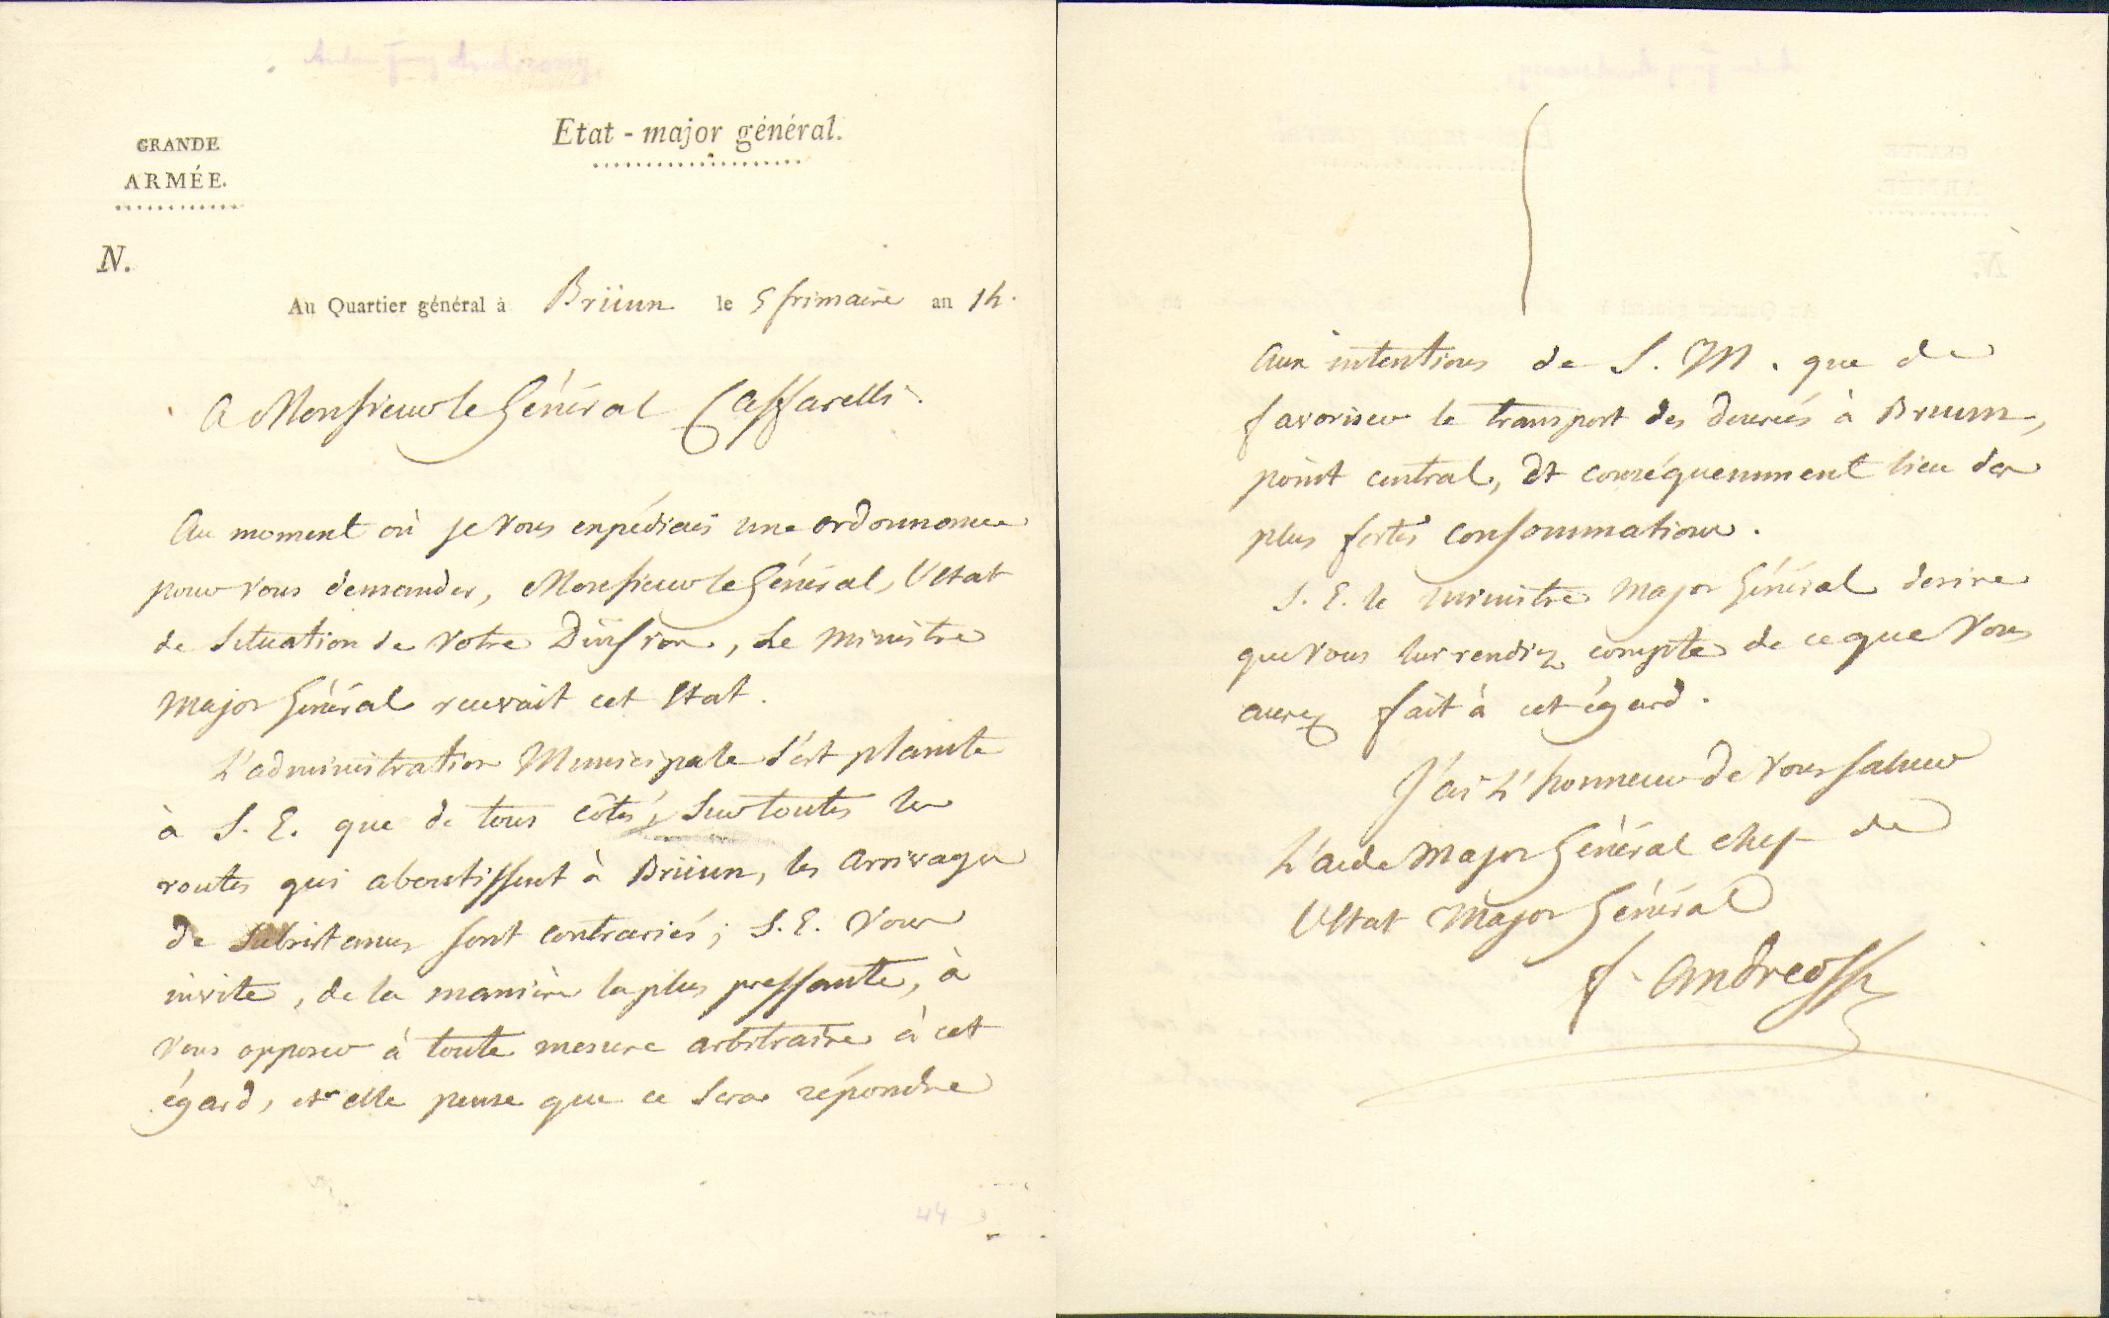 GRANDE
ARMÉE.
Etat-major général.
N.
Au Quartier général à Brüun le 5 frimaire an 14.
A Monsieur le Général Caffarelli.
Au moment où je vous expédiais une ordonnance
pour vous demander, Monsieur le Général, l'Etat
de Situation de votre Division, Le Ministre
Major Général recevait cet Etat.
L'administration Municipale s'est plainte
à S. E. que de tous côtés, Sur toutes les
routes qui aboutissent à Brüun, les arrivages
de Subsistances sont contrariés; S. E. vous
invite, de la manière la plus pressante, à
vous opposer à toute mesure arbitraire à cet
égard, et elle pense que ce Sera répondre
44
aux intentions de S. M. que de
favoriser le transport des denrées à Bruun,
point central, et conséquemment lieu des
plus fortes consommations.
S. E. le ministre Major Général desire
que vous lui rendiez compte de ce que vous
aurez fait à cet égard.
J'ai L'honneur de vous saluer
L'aide Major Général chef de
l'Etat Major Général
f. andreossy